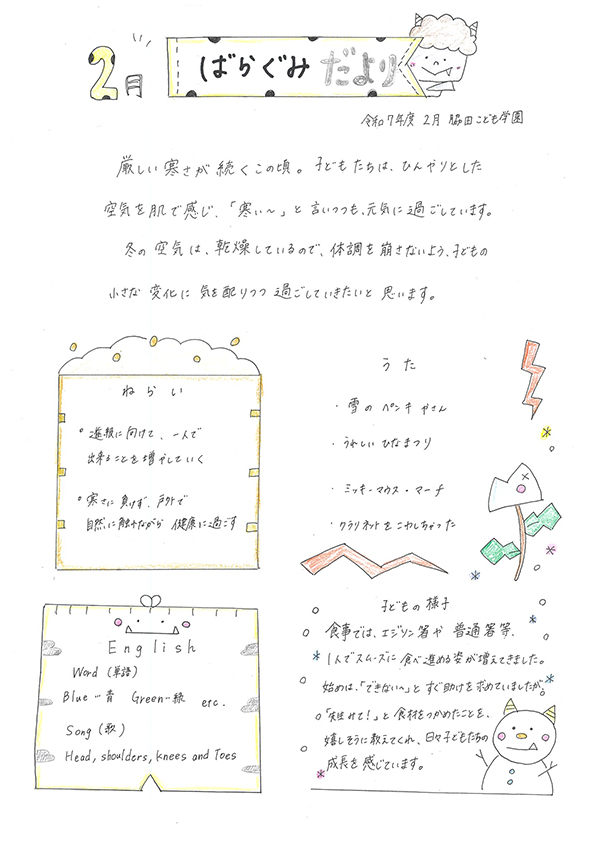 2月 ばらぐみだより
令和7年度 2月 脇田こども学園
厳しい寒さが続くこの頃。子どもたちは、ひんやりとした
空気を肌で感じ、「寒い〜」と言いつつも、元気に過ごしています。
冬の空気は、乾燥しているので、体調を崩さないよう、子どもの
小さな変化に気を配りつつ過ごしていきたいと思います。
ねらい
○進級に向けて、一人で
出来ることを増やしていく
○寒さに負けず、戸外で
自然に触れながら健康に過ごす
うた
・雪のペンキやさん
・うれしいひなまつり
・ミッキーマウス・マーチ
・クラリネットをこわしちゃった
English
Word(単語)
Blue…青 Green…緑 etc.
Song(歌)
Head, shoulders, knees and Toes
子どもの様子
食事では、エジソン箸や普通箸等、
1人でスムーズに食べ進める姿が増えてきました。
始めは、「できない〜」とすぐ助けを求めていましたが、
「先生みて!」と食材をつかめたことを、
嬉しそうに教えてくれ、日々子どもたちの
成長を感じています。